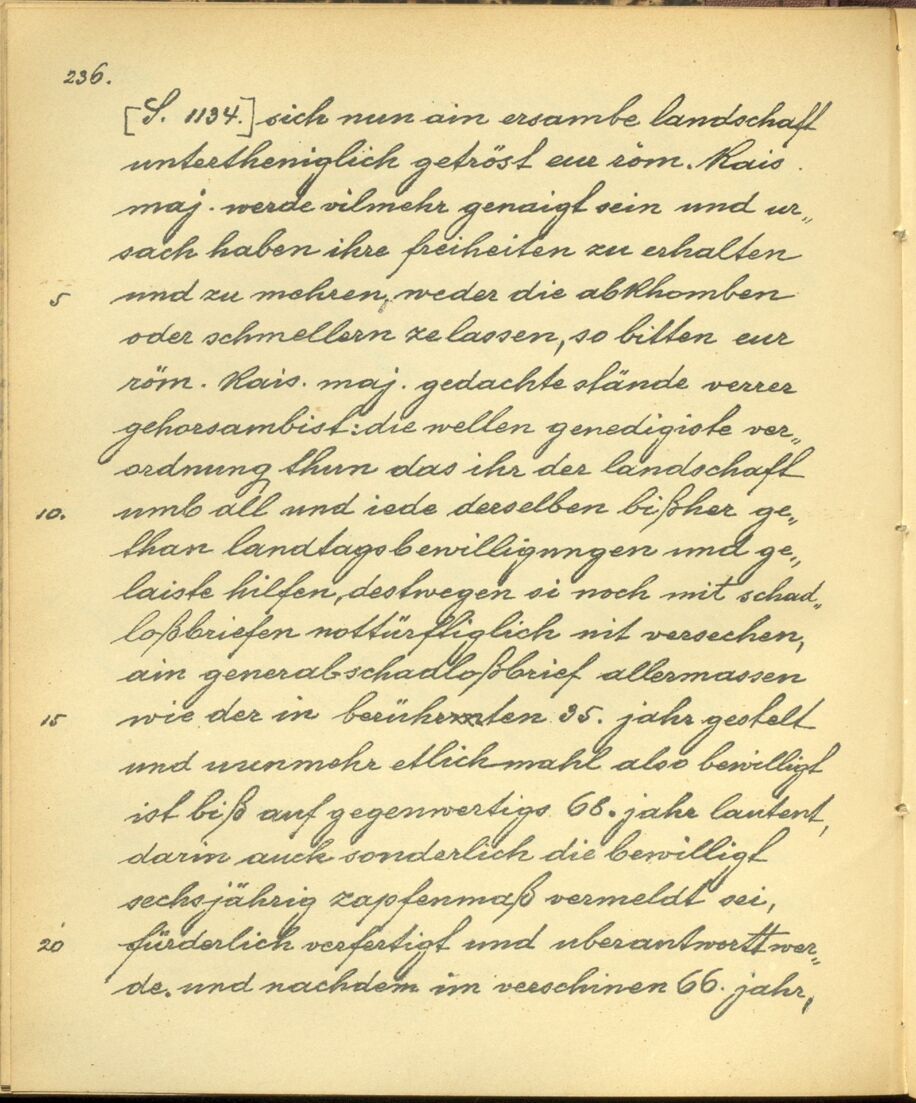 236.
[S. 1134.] sich nun ain ersambe landschaft
untertheniglich getröst eur röm. Kais.
maj. werde vilmehr genaigt sein und ur„
sach haben ihre freiheiten zu erhalten
5 und zu mehren, weder die abkhomben
oder schmellern ze lassen, so bitten eur
röm. Kais. maj. gedachte stände verrer
gehorsambist: die wellen genedigiste ver„
ordnung thun das ihr der landschaft
10. umb all und iede derselben bißher ge„
than landtagsbewilligungen und ge„
laiste hilfen, destwegen si noch mit schad„
loßbriefen nottürftiglich nit versechen,
ain general-schadloßbrief allermassen
15 wie der in berührten 35. jahr gestelt
und nunmehr etlich mahl also bewilligt
ist biß auf gegenwertigs 68. jahr lautent,
darin auch sonderlich die bewilligt
sechsjährig zapfenmaß vermeldt sei,
20 fürderlich verfertigt und uberantwortt wer„
de. und nachdem im verschinen 66. jahr,